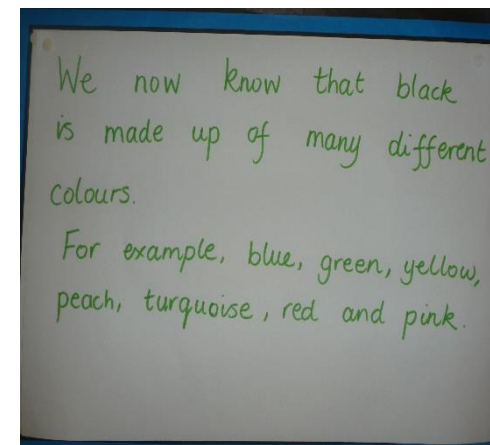 We now know that black
is made up of many different
colours.
For example, blue, green, yellow,
peach, turquoise, red and pink.